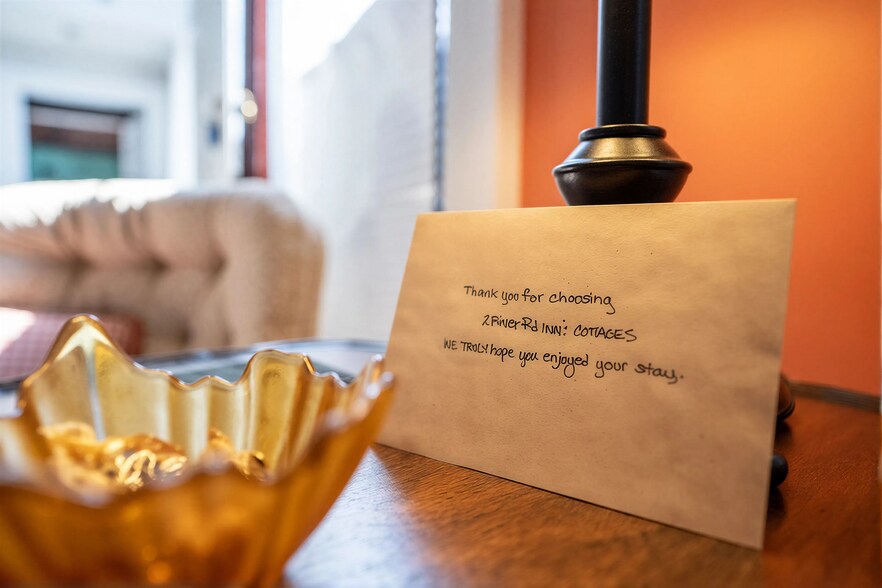 Thank you for choosing
2 River Rd INN: COTTAGES
WE TRULY hope you enjoyed your stay.